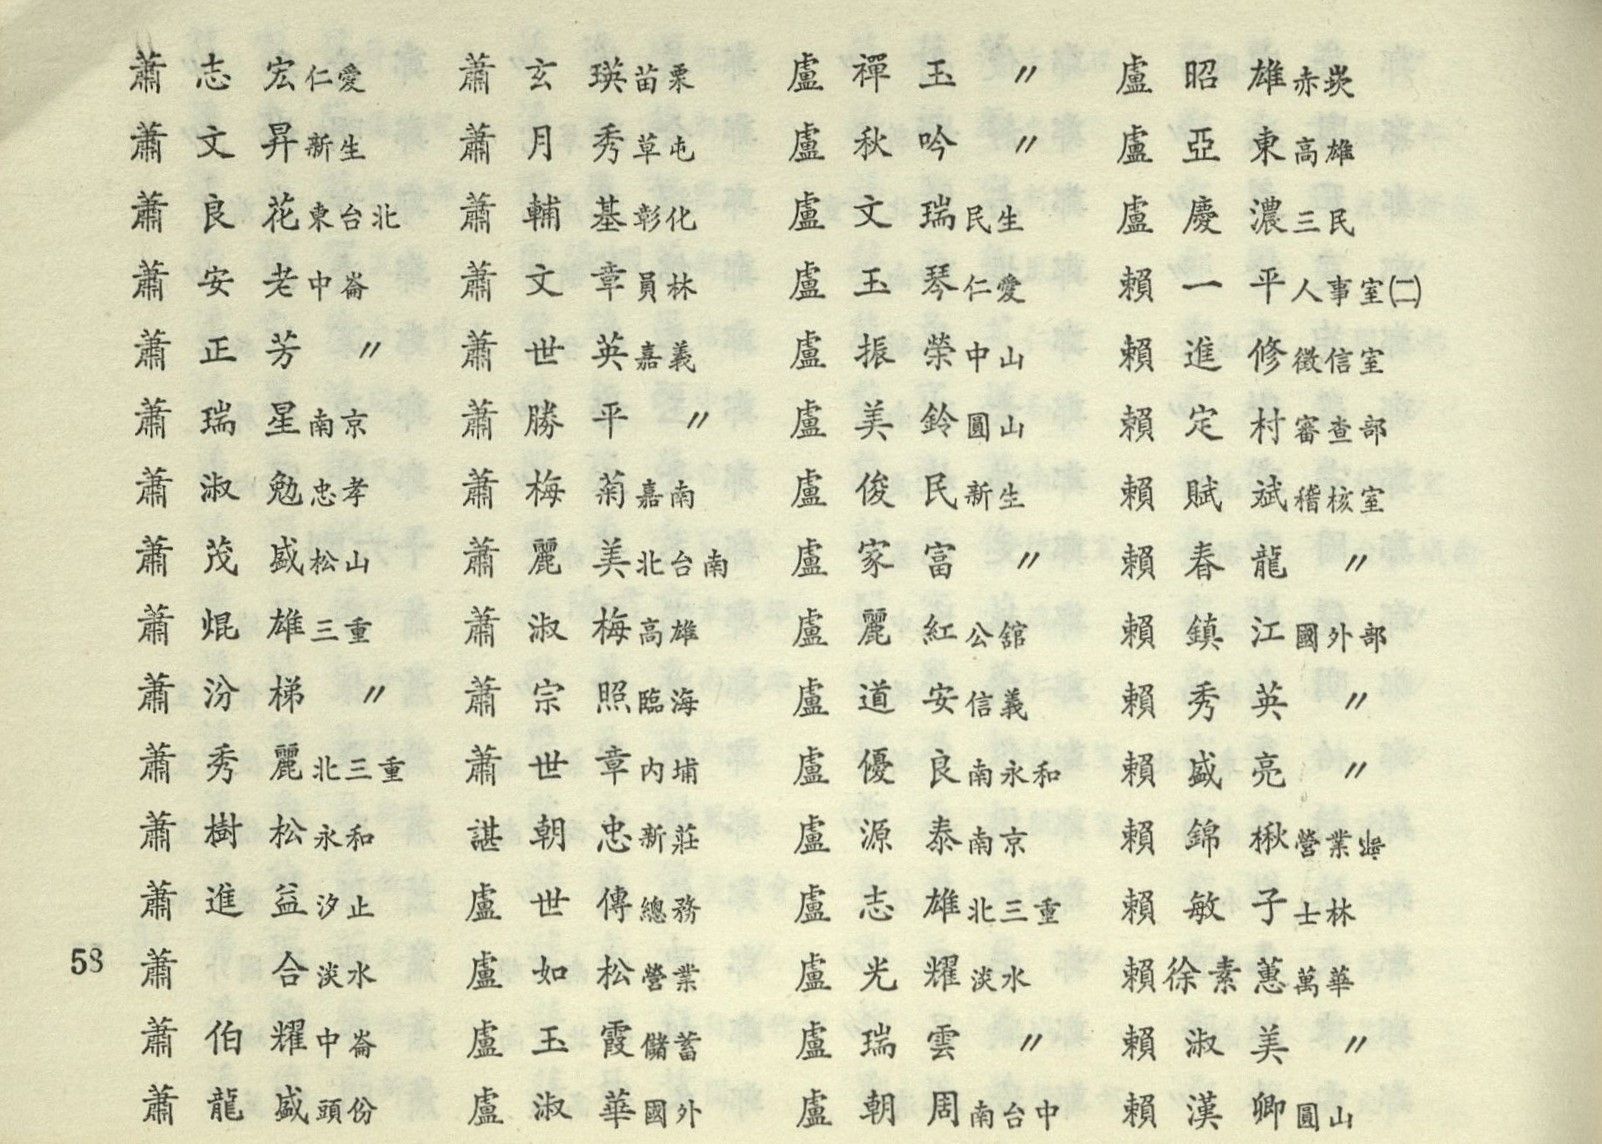 蕭志宏仁愛
蕭文昇新生
蕭良花東台北
蕭安老中崙
蕭正芳〃
蕭瑞星南京
蕭淑勉忠孝
蕭茂盛松山
蕭焜雄三重
蕭汾梯〃
蕭秀麗北三重
蕭樹松永和
蕭進益汐止
蕭合淡水
蕭伯耀中崙
蕭龍盛頭份
蕭玄瑛苗栗
蕭月秀草屯
蕭輔基彰化
蕭文章員林
蕭世英嘉義
蕭勝平〃
蕭梅菊嘉南
蕭麗美北台南
蕭淑梅高雄
蕭宗照臨海
蕭世章內埔
諶朝忠新莊
盧世傳總務
盧如松營業
盧玉霞儲蓄
盧淑華國外
盧禪玉〃
盧秋吟〃
盧文瑞民生
盧玉琴仁愛
盧振榮中山
盧美鈴圓山
盧俊民新生
盧家富〃
盧麗紅公舘
盧道安信義
盧優良南永和
盧源泰南京
盧志雄北三重
盧光耀淡水
盧瑞雲〃
盧朝周南台中
盧昭雄赤崁
盧亞東高雄
盧慶濃三民
賴一平人事室㈡
賴進修徵信室
賴定村審查部
賴賦斌稽核室
賴春龍〃
賴鎮江國外部
賴秀英〃
賴盛亮〃
賴錦楸營業
賴敏子士林
賴徐素蕙萬華
賴淑美〃
賴漢卿圓山
58